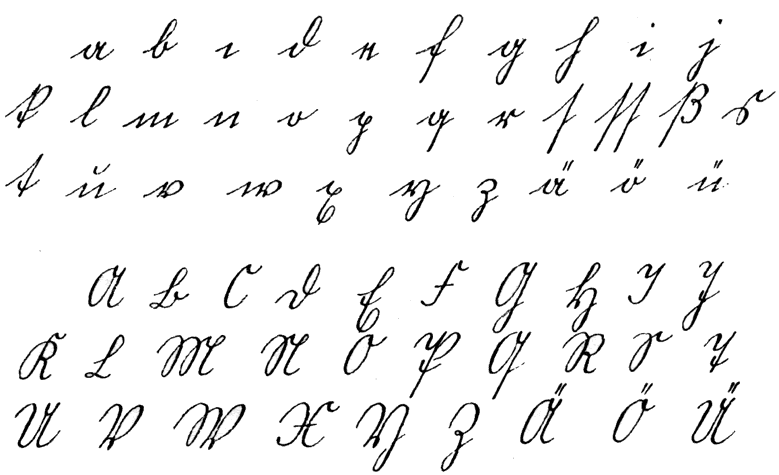 a b c d e f g h i j
k l m n o p q r ſ ſſ ß s
t u v w x y z ä ö ü
A B C D E F G H I J
K L M N O P Q R S T
U V W X Y Z Ä Ö Ü